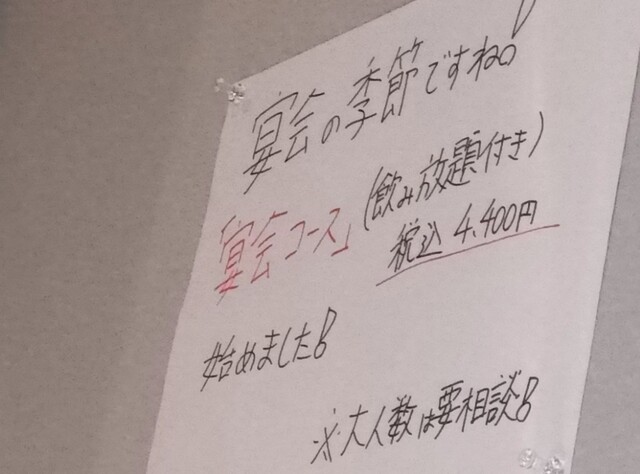 宴会の季節ですね!
「宴会コース」(飲み放題付き)
税込 4,400円
始めました!
※大人数は要相談!